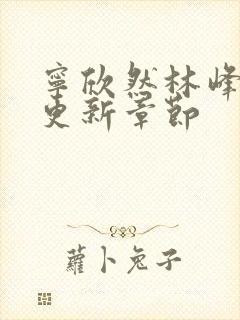 寧欣然林峰
更新章節
蘿卜兔子